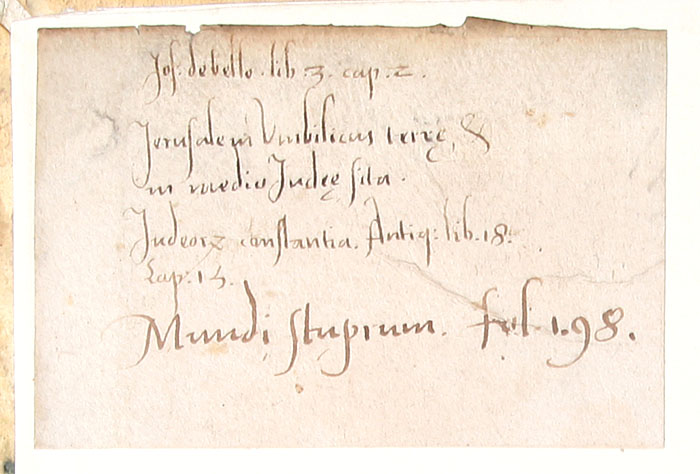 Jos: de bello. lib. 3. cap. 2.
Jerusalem Vmbilicus terrę, &
in medio Judęę sita.
Judeorꝝ constantia. Antiq: lib. 18.
Cap. 15.
Mundi stuprum. fol. 198.